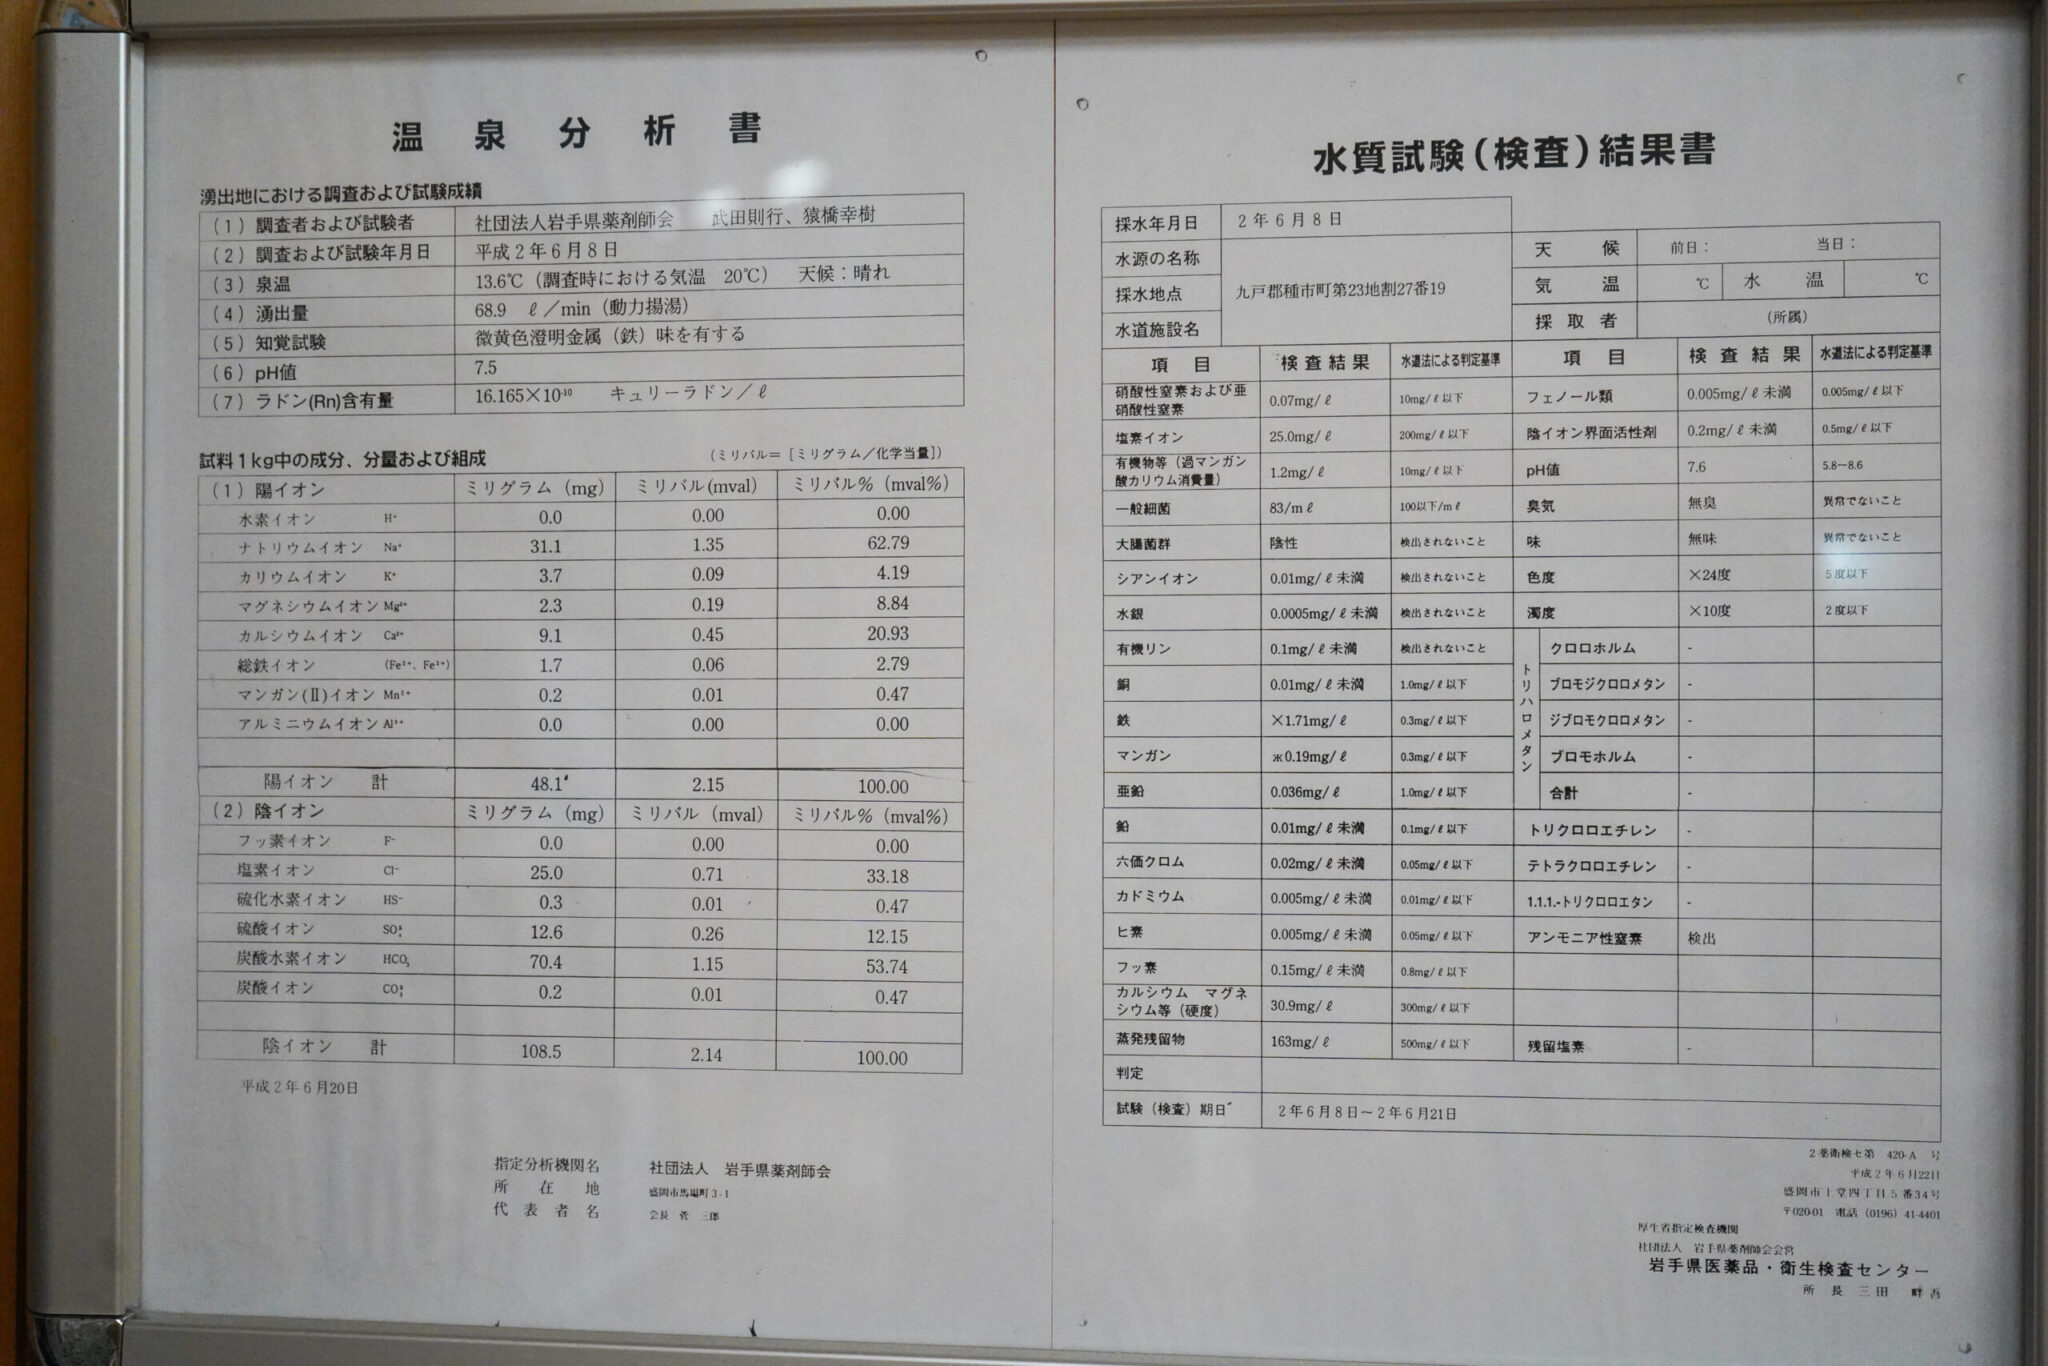 温泉分析書
湧出地における調査および試験成績
(1) 調査者および試験者 社団法人岩手県薬剤師会 武田則行、猿橋幸樹
(2) 調査および試験年月日 平成2年6月8日
(3) 泉温 13.6℃（調査時における気温 20℃） 天候：晴れ
(4) 湧出量 68.9 ℓ／min（動力揚湯）
(5) 知覚試験 微黄色澄明金属（鉄）味を有する
(6) pH値 7.5
(7) ラドン(Rn)含有量 16.165×10⁻¹⁰ キュリーラドン／ℓ
試料1kg中の成分、分量および組成 （ミリバル＝［ミリグラム／化学当量］）
(1) 陽イオン ミリグラム（mg） ミリバル(mval) ミリバル％（mval%）
水素イオン H⁺ 0.0 0.00 0.00
ナトリウムイオン Na⁺ 31.1 1.35 62.79
カリウムイオン K⁺ 3.7 0.09 4.19
マグネシウムイオン Mg²⁺ 2.3 0.19 8.84
カルシウムイオン Ca²⁺ 9.1 0.45 20.93
総鉄イオン (Fe²⁺、Fe³⁺) 1.7 0.06 2.79
マンガン(Ⅱ)イオン Mn²⁺ 0.2 0.01 0.47
アルミニウムイオン Al³⁺ 0.0 0.00 0.00
陽イオン 計 48.1 2.15 100.00
(2) 陰イオン ミリグラム（mg） ミリバル（mval） ミリバル％（mval%）
フッ素イオン F⁻ 0.0 0.00 0.00
塩素イオン Cl⁻ 25.0 0.71 33.18
硫化水素イオン HS⁻ 0.3 0.01 0.47
硫酸イオン SO₄²⁻ 12.6 0.26 12.15
炭酸水素イオン HCO₃⁻ 70.4 1.15 53.74
炭酸イオン CO₃²⁻ 0.2 0.01 0.47
陰イオン 計 108.5 2.14 100.00
平成2年6月20日
指定分析機関名 社団法人 岩手県薬剤師会
所在地 盛岡市馬場町3-1
代表者名 会長 菅 三郎
水質試験（検査）結果書
採水年月日 2年6月8日
水源の名称
採水地点 九戸郡種市町第23地割27番19
水道施設名
天候 前日： 当日：
気温 ℃ 水温 ℃
採取者 （所属）
項目 検査結果 水道法による判定基準 項目 検査結果 水道法による判定基準
硝酸性窒素および亜硝酸性窒素 0.07mg/ℓ 10mg/ℓ以下 フェノール類 0.005mg/ℓ未満 0.005mg/ℓ以下
塩素イオン 25.0mg/ℓ 200mg/ℓ以下 陰イオン界面活性剤 0.2mg/ℓ未満 0.5mg/ℓ以下
有機物等（過マンガン酸カリウム消費量） 1.2mg/ℓ 10mg/ℓ以下 pH値 7.6 5.8〜8.6
一般細菌 83/mℓ 100以下/mℓ 臭気 無臭 異常でないこと
大腸菌群 陰性 検出されないこと 味 無味 異常でないこと
シアンイオン 0.01mg/ℓ未満 検出されないこと 色度 ×24度 5度以下
水銀 0.0005mg/ℓ未満 検出されないこと 濁度 ×10度 2度以下
有機リン 0.1mg/ℓ未満 検出されないこと トリハロメタン クロロホルム -
銅 0.01mg/ℓ未満 1.0mg/ℓ以下 ブロモジクロロメタン -
鉄 ×1.71mg/ℓ 0.3mg/ℓ以下 ジブロモクロロメタン -
マンガン ж0.19mg/ℓ 0.3mg/ℓ以下 ブロモホルム -
亜鉛 0.036mg/ℓ 1.0mg/ℓ以下 合計 -
鉛 0.01mg/ℓ未満 0.1mg/ℓ以下 トリクロロエチレン -
六価クロム 0.02mg/ℓ未満 0.05mg/ℓ以下 テトラクロロエチレン -
カドミウム 0.005mg/ℓ未満 0.01mg/ℓ以下 1.1.1.-トリクロロエタン -
ヒ素 0.005mg/ℓ未満 0.05mg/ℓ以下 アンモニア性窒素 検出
フッ素 0.15mg/ℓ未満 0.8mg/ℓ以下
カルシウム マグネシウム等（硬度） 30.9mg/ℓ 300mg/ℓ以下
蒸発残留物 163mg/ℓ 500mg/ℓ以下 残留塩素 -
判定
試験（検査）期日 2年6月8日〜2年6月21日
2薬衛検セ第 420-A 号
平成2年6月22日
盛岡市上堂四丁目5番34号
〒020-01 電話（0196）41-4401
厚生省指定検査機関
社団法人 岩手県薬剤師会会営
岩手県医薬品・衛生検査センター
所長 三田 畔吾